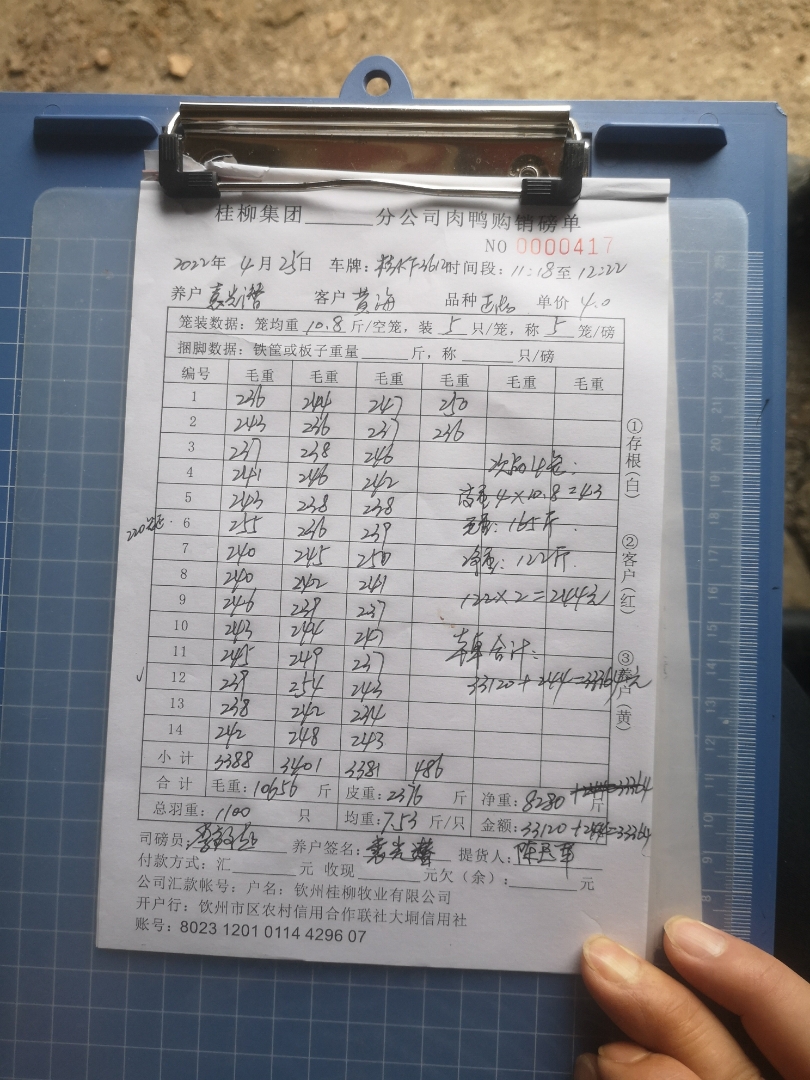 桂柳集团______分公司肉鸭购销磅单
NO 0000417
2022年 4月25日 车牌: 时间段: 11:18至12:22
养户 客户 黄海 品种 单价 4.0
笼装数据: 笼均重 10.8 斤/空笼, 装 5 只/笼, 称 5 笼/磅
捆脚数据: 铁筐或板子重量______斤, 称______只/磅
编号 毛重 毛重 毛重 毛重 毛重 毛重
1 236 244 247 250
2 243 236 237 236
3 237 238 246
4 241 246 242
5 243 238 238
6 255 236 239
7 240 245 250
8 240 242 241
9 246 239 237
10 243 244 247
11 245 249 237
12 239 254 243
13 238 242 234
14 242 248 243
小计 3388 3401 3381 486
4×10.8=43
毛重: 165斤
净重: 122斤
122×2=244元
合计:
33120+244=33364元
合计 毛重: 10656 斤 皮重: 2376 斤 净重: 8280 斤
总羽重: 1100 只 均重: 7.53 斤/只 金额: 33120+244=33364
司磅员: 养户签名: 提货人:
付款方式: 汇______元 收现______元欠(余):______元
公司汇款帐号: 户名: 钦州桂柳牧业有限公司
开户行: 钦州市区农村信用合作联社大垌信用社
账号: 8023 1201 0114 4296 07
①存根(白)
②客户(红)
③养户(黄)